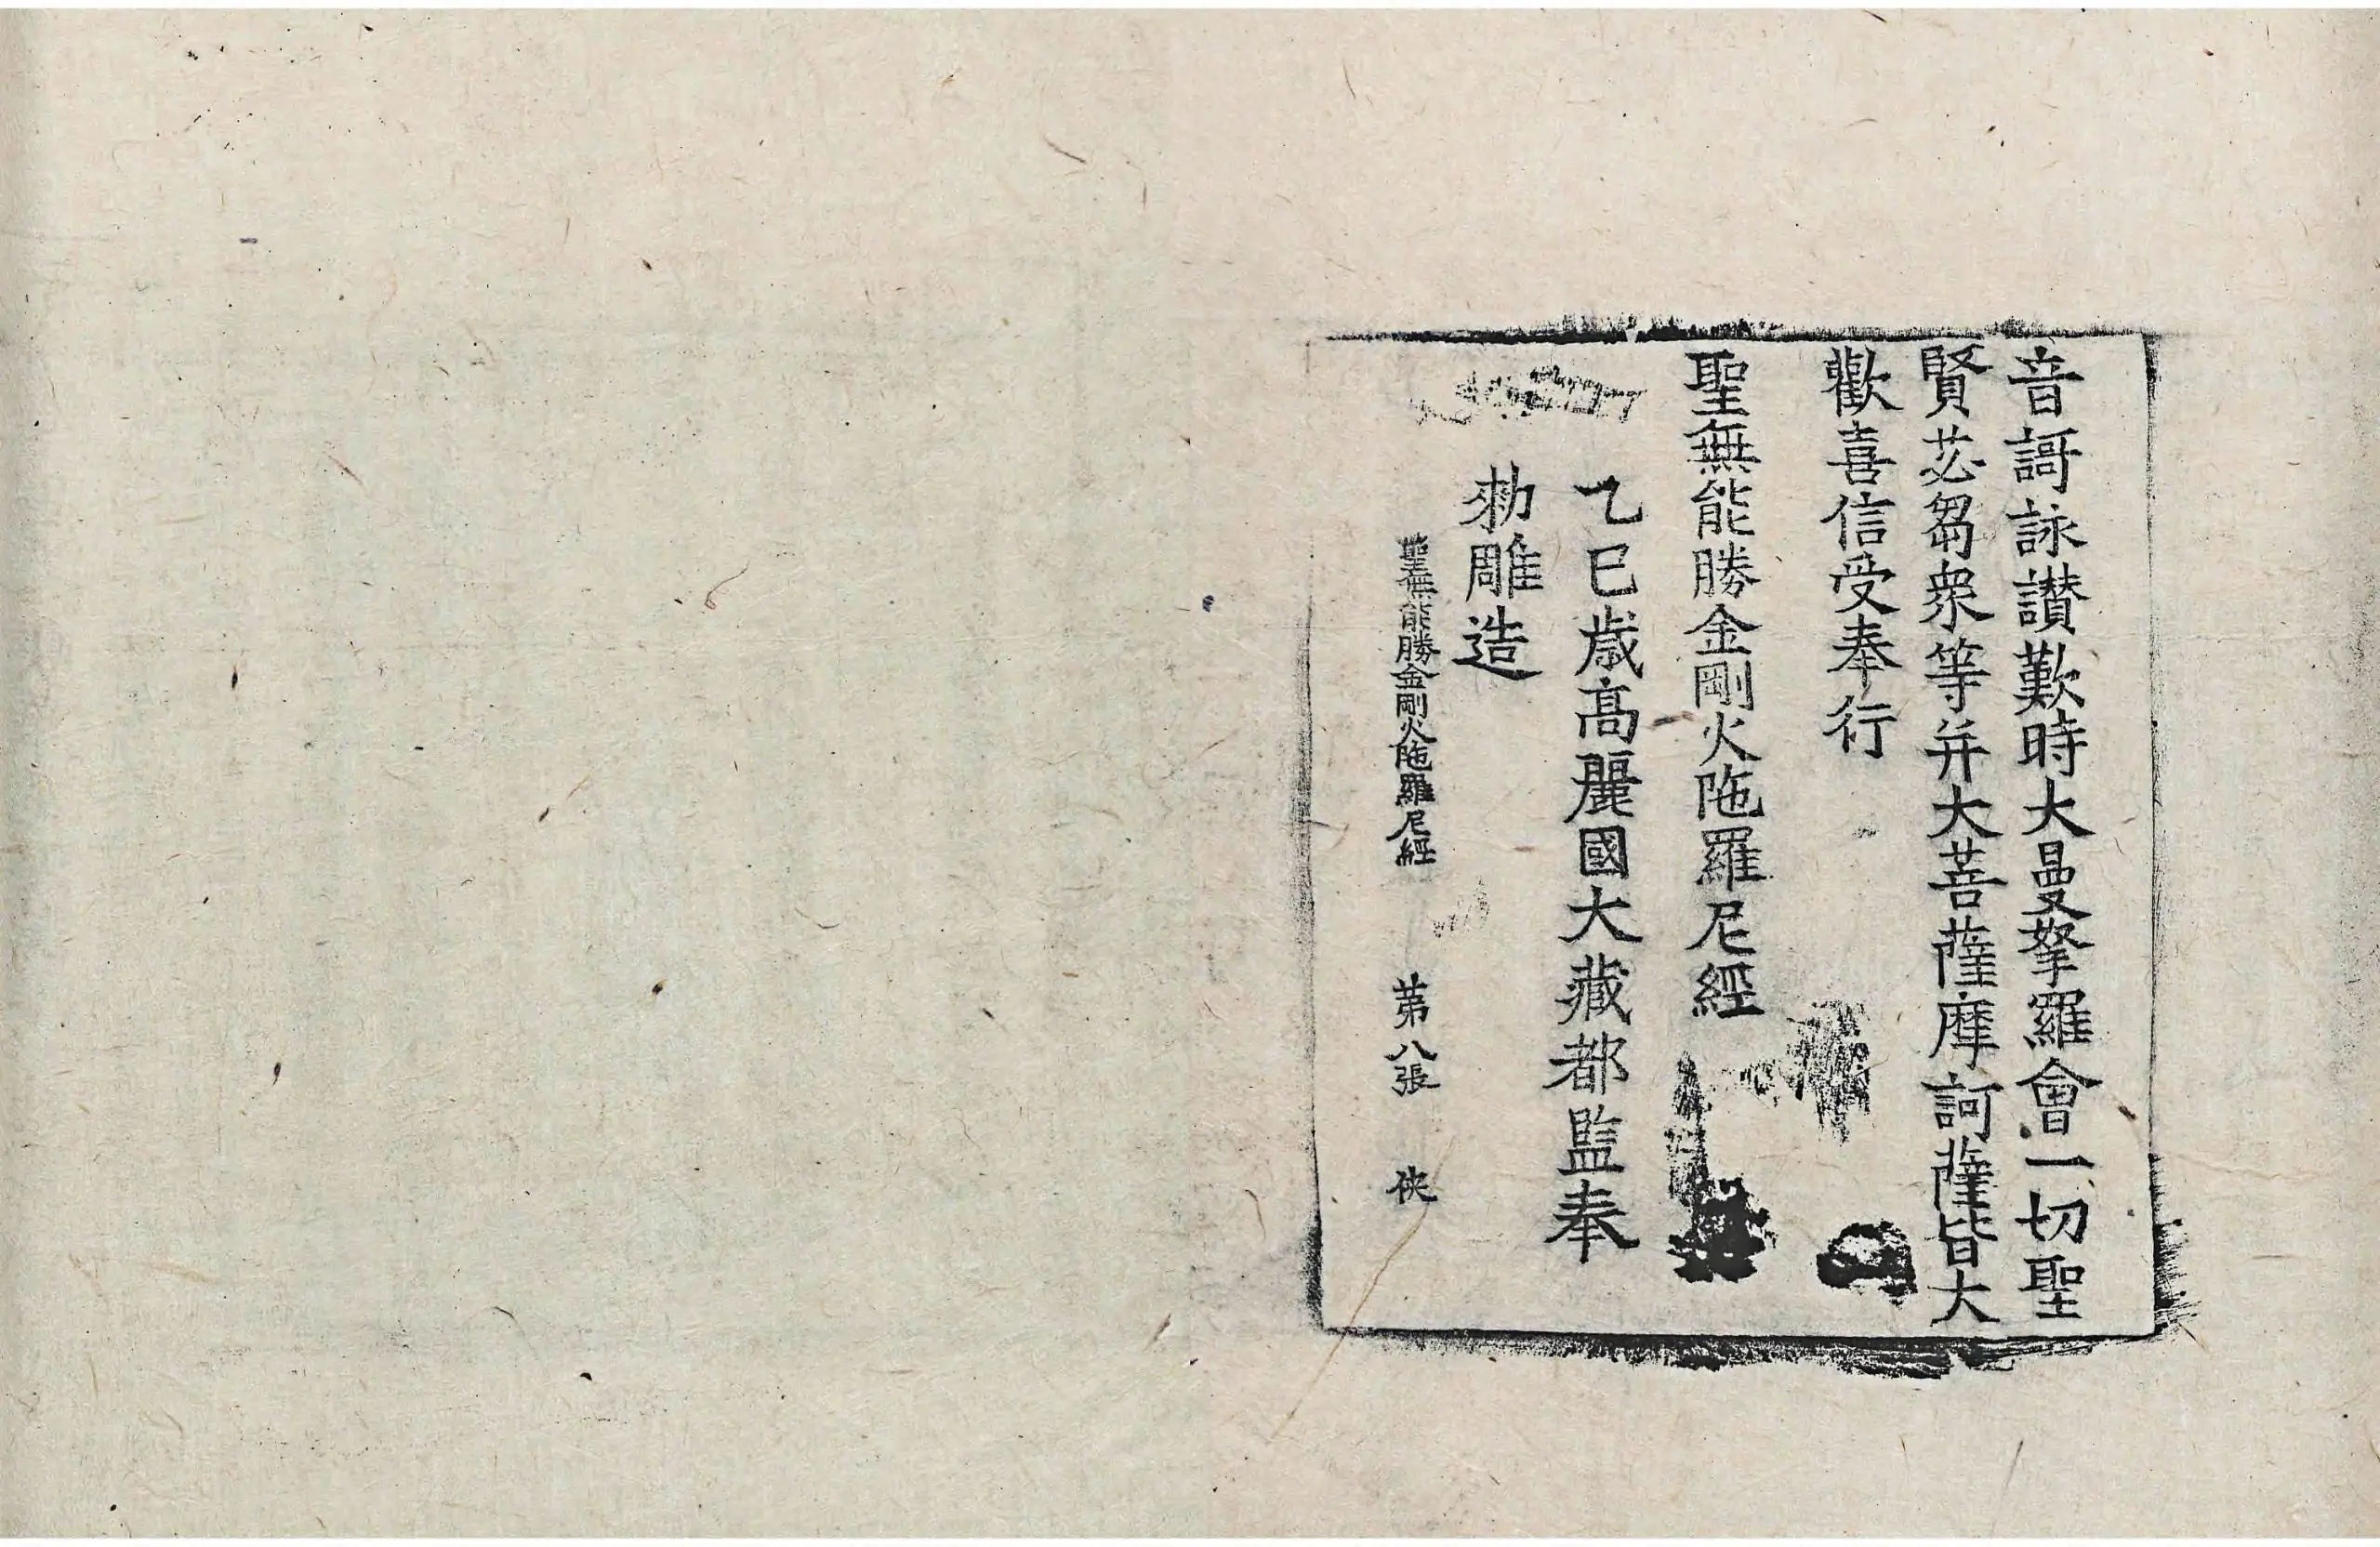 音謌詠讃歎時大曼拏羅會一切聖
賢苾芻衆等并大菩薩摩訶薩皆大
歡喜信受奉行
聖無能勝金剛火陁羅尼經
乙巳歳高麗國大藏都監奉
勅雕造
聖無能勝金剛火陁羅尼經 第八張 俠